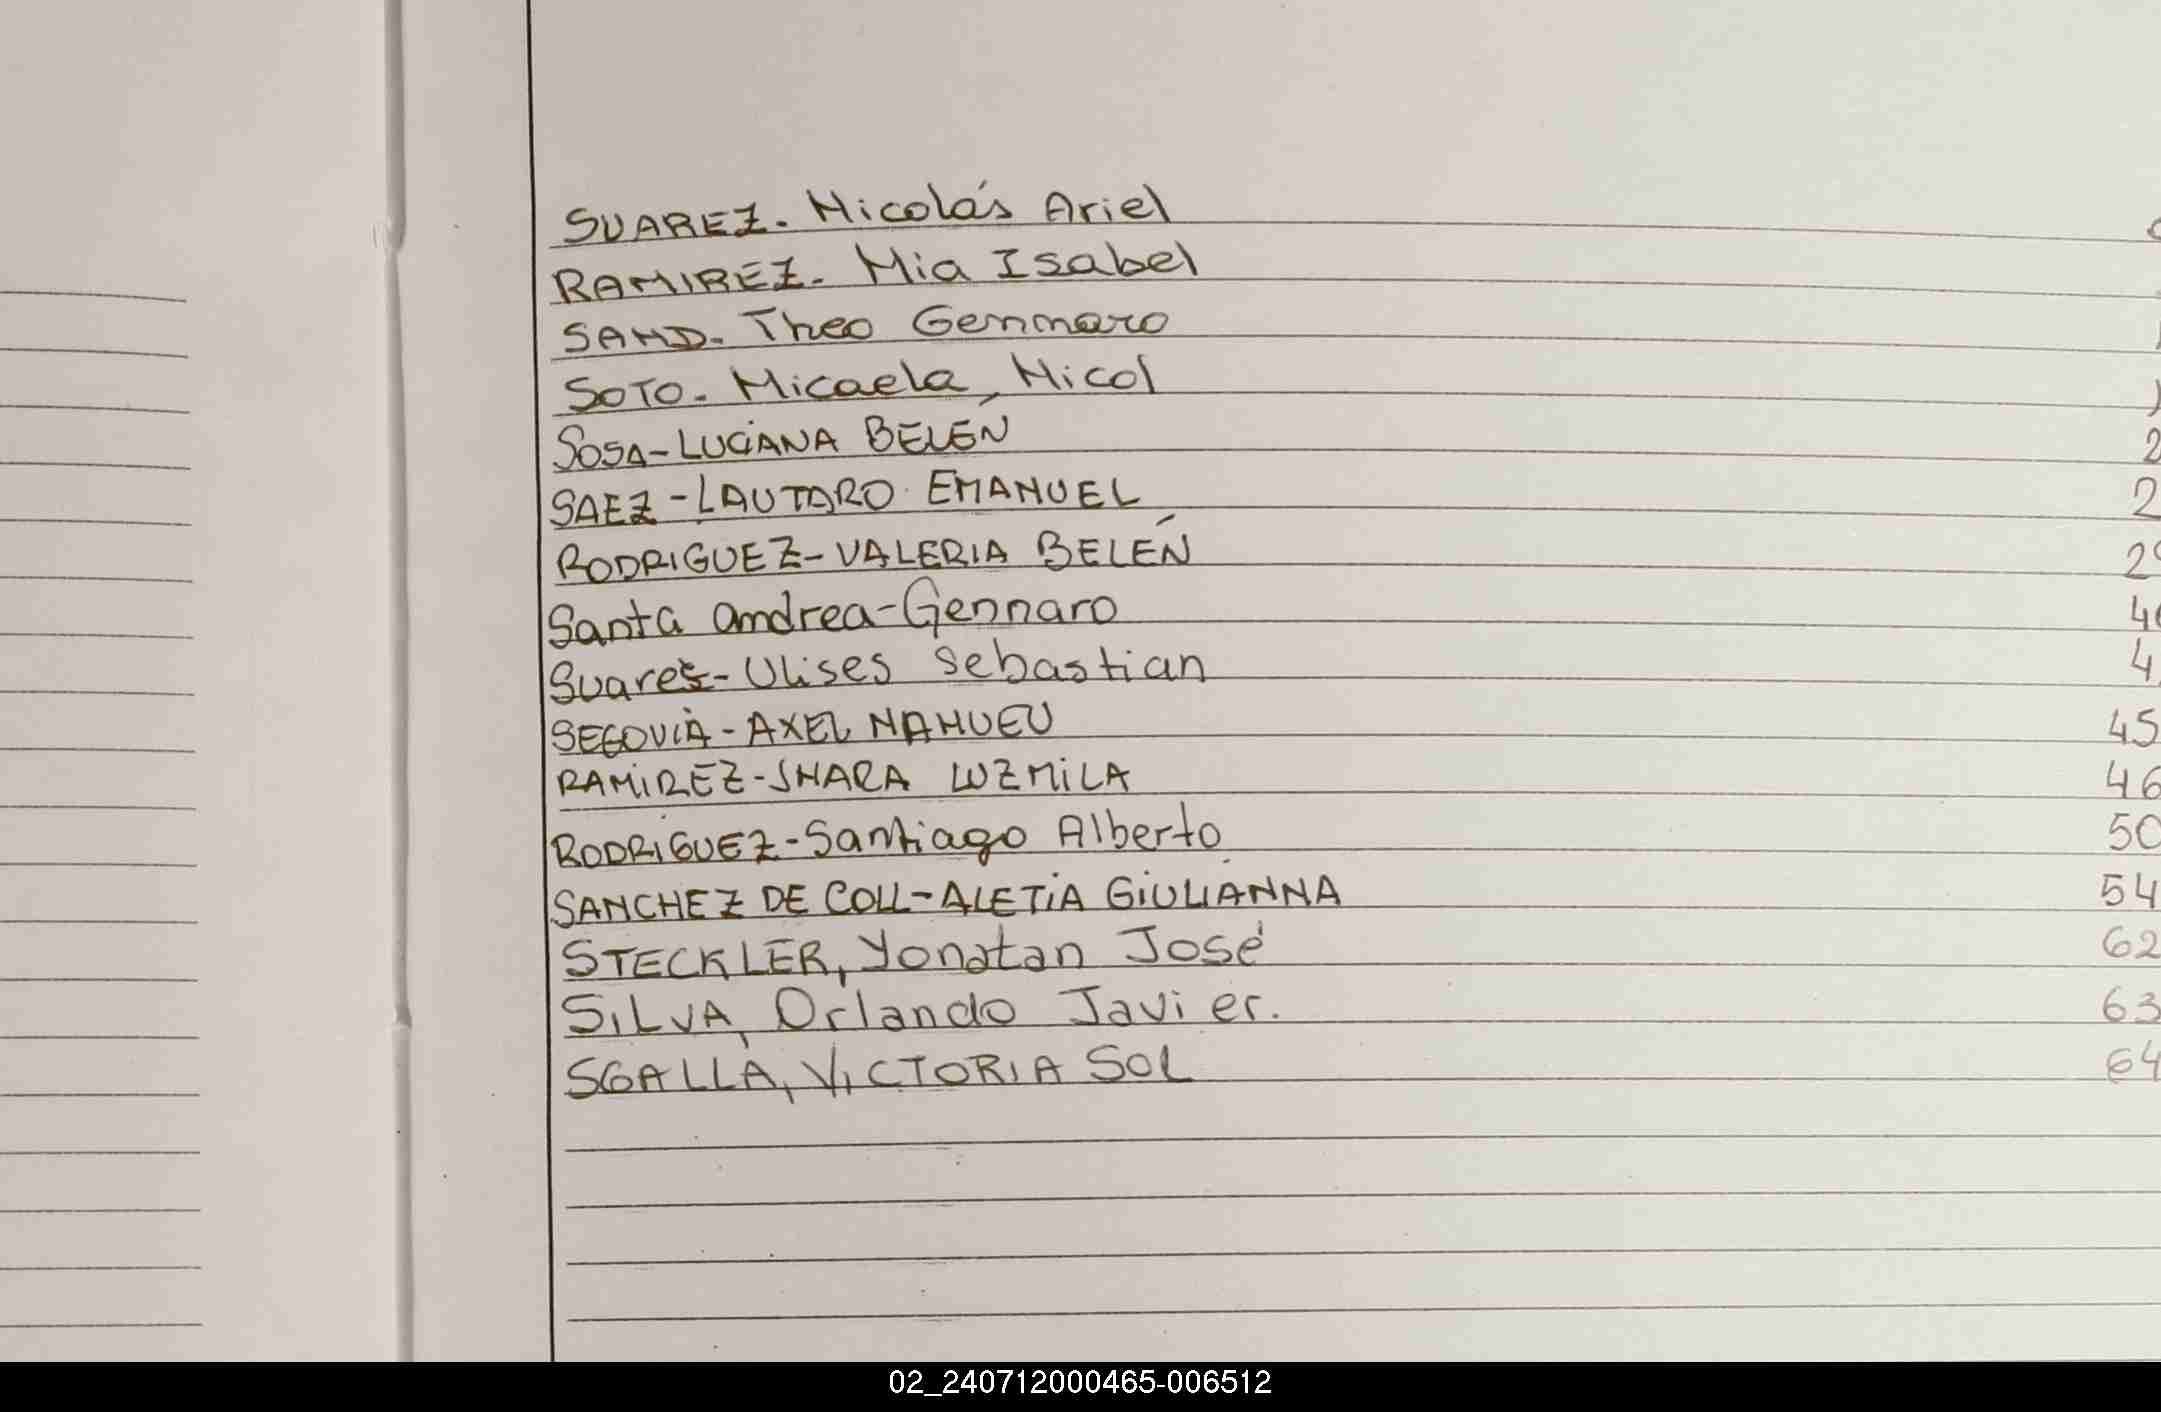 SUAREZ. Nicolás Ariel
RAMIREZ. Mia Isabel
SAND. Theo Gennaro
SOTO. Micaela, Nicol
SOSA-LUCIANA BELÉN 2
SAEZ-LAUTARO EMANUEL 2
RODRIGUEZ-VALERIA BELÉN 29
Santa andrea-Gennaro 4
Suarez-Ulises Sebastian 4
SEGOVIA-AXEL NAHUEL 45
RAMIREZ-SHARA LUZMILA 46
RODRIGUEZ-Santiago Alberto 50
SANCHEZ DE COLL-ALETIA GIULIANNA 54
STECKLER, Yonatan José 62
SILVA, Orlando Javier. 63
SGALLA, VICTORIA SOL 64
02_240712000465-006512